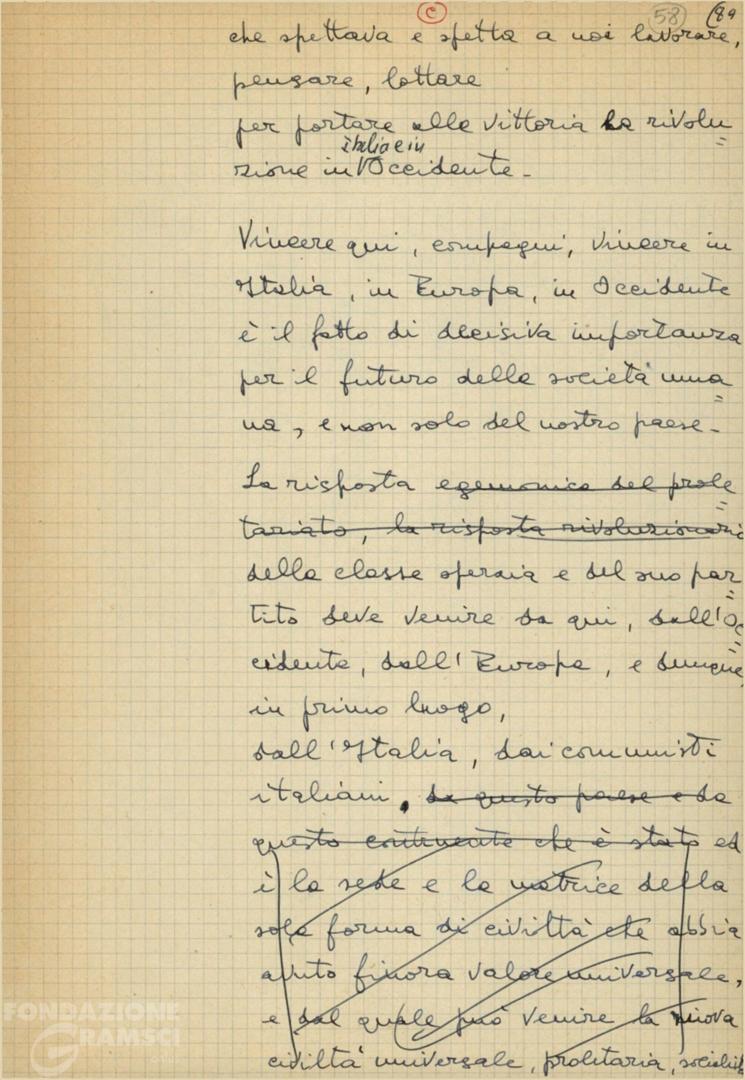 C 58 89
che spettava e spetta a noi lavorare,
pensare, lottare
per portare alla vittoria la rivolu=
italia e in
zione in Occidente.
Vincere qui, compagni, vincere in
Italia, in Europa, in Occidente
è il fatto di decisiva importanza
per il futuro della società uma=
na, e non solo del nostro paese.
La risposta egemonica del prole=
tariato, la risposta rivoluzionaria
della classe operaia e del suo par=
tito deve venire da qui, dall'Oc=
cidente, dall'Europa, e dunque,
in primo luogo,
dall'Italia, dai comunisti
italiani. da questo paese e da
questo continente che è stato ed
è la sede e la matrice della
sola forma di civiltà che abbia
avuto finora valore universale,
e dal quale può venire la nuova
civiltà universale, proletaria, socialist
FONDAZIONE
GRAMSCI